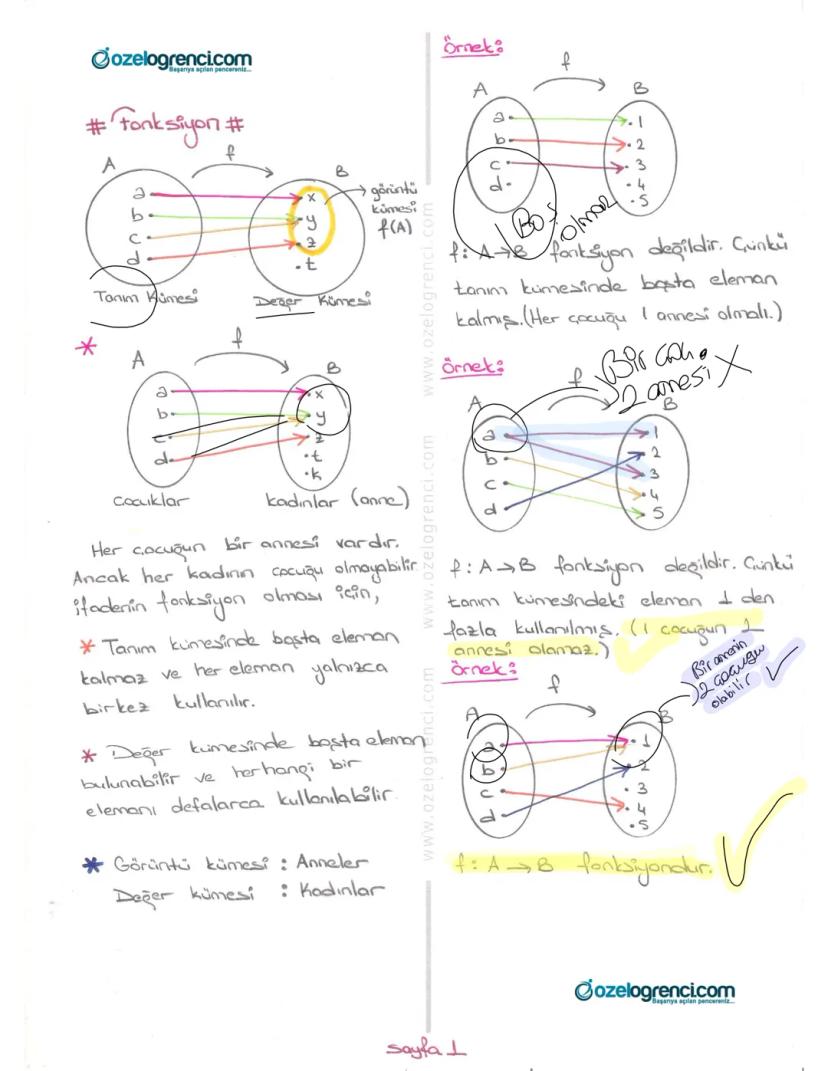 ozelogrenci.com
Başarıya açılan pencereniz...
# Fonksiyon #
A
f
B
a
b
c
d
x
y
z
t
görüntü
kümesi
f(A)
Tanım Kümesi
Değer Kümesi
*
A
f
B
a
b
c
d
x
y
z
t
k
Çocuklar
kadınlar (anne)
Her çocuğun bir annesi vardır.
Ancak her kadının çocuğu olmayabilir
ifadenin fonksiyon olması için,
* Tanım kümesinde boşta eleman
kalmaz ve her eleman yalnızca
birkez kullanılır.
* Değer kümesinde boşta eleman
bulunabilir ve herhangi bir
elemanı defalarca kullanılabilir.
* Görüntü kümesi : Anneler
Değer kümesi : Kadınlar
www.ozelogrenci.com www.ozelogrenci.com www.ozelogrenci.com www.ozelogrenci.com
Örnek:
A
f
B
a
b
c
d
1
2
3
4
5
Boş
olmaz
f: A→B fonksiyon değildir. Çünkü
tanım kümesinde boşta eleman
kalmış. (Her çocuğu 1 annesi olmalı.)
Örnek:
Bir çocu.
2 annesi X
A
f
B
a
b
c
d
1
2
3
4
5
f: A→B fonksiyon değildir. Çünkü
tanım kümesindeki eleman 1 den
fazla kullanılmış. (1 çocuğun 2
annesi olamaz.)
Örnek:
Bir annenin
2 çocuğu
olabilir
A
f
B
a
b
c
d
1
2
3
4
5
f: A→B fonksiyondur.
ozelogrenci.com
Başarıya açılan pencereniz...
sayfa 1